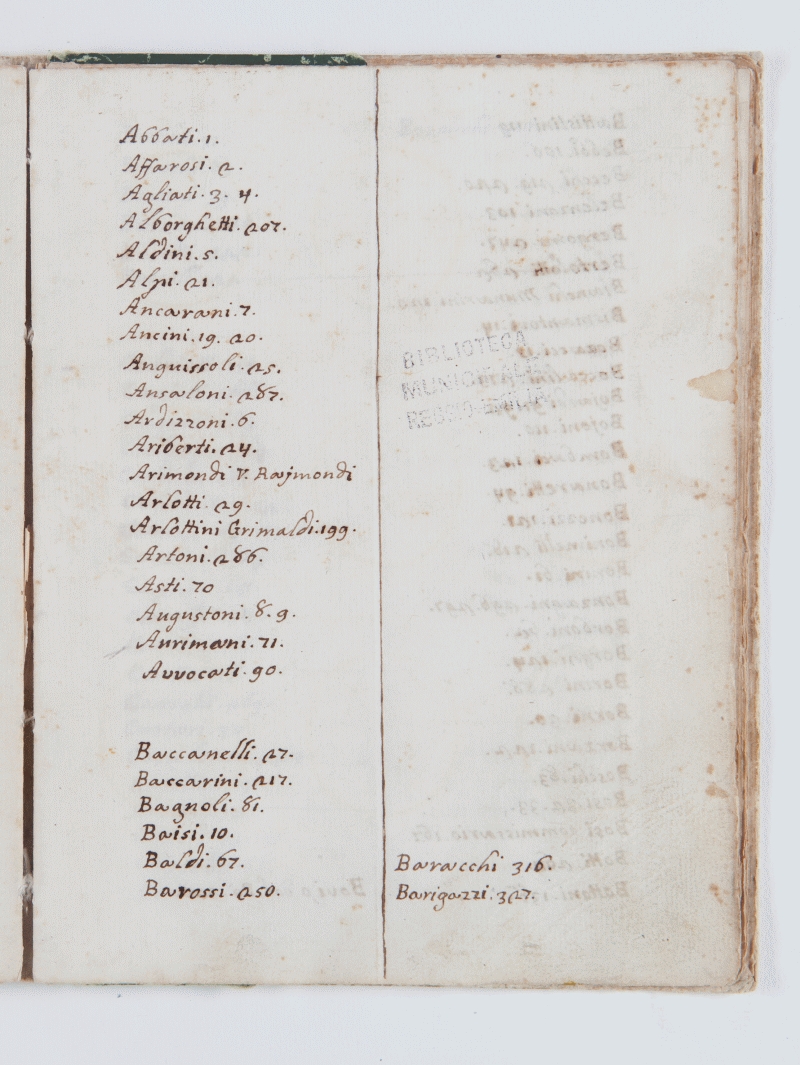 Abbati. 1.
Affarosi. 2.
Agliati. 3. 4.
Alborghetti. 207.
Aldini. 5.
Alpi. 21.
Ancarani. 7.
Ancini. 19. 20.
Anguissoli. 25.
Ansaloni. 287.
Ardizzoni. 6.
Ariberti. 24.
Arimondi V. Rajmondi
Arlotti. 29.
Arlottini Grimaldi. 199.
Artoni. 286.
Asti. 70
Augustoni. 8. 9.
Aurimani. 71.
Avvocati. 90.
Baccanelli. 27.
Baccarini. 217.
Bagnoli. 81.
Baisi. 10.
Baldi. 67.
Barossi. 250.
BIBLIOTECA
MUNICIPALE
REGGIO EMILIA
Baracchi 316.
Barigazzi. 327.